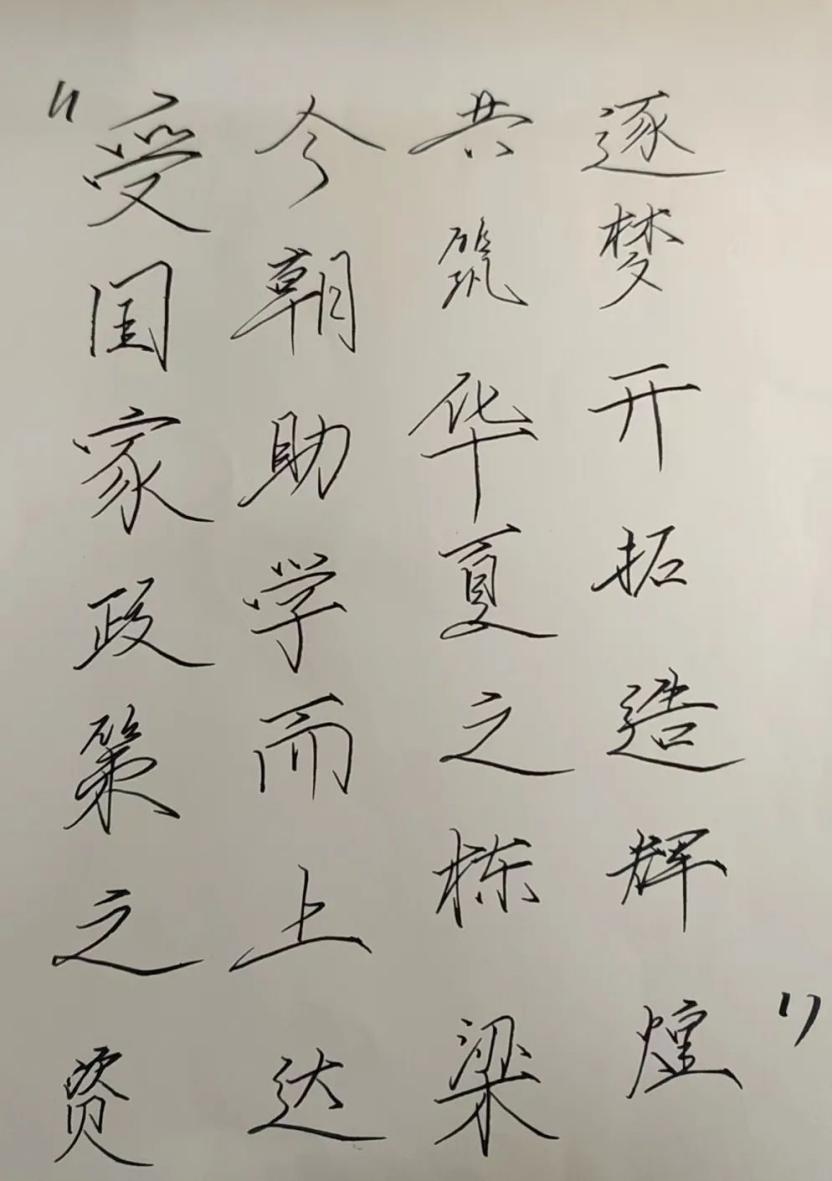 “受国家政策之资
今朝助学而上达
共筑华夏之栋梁
逐梦开拓造辉煌”